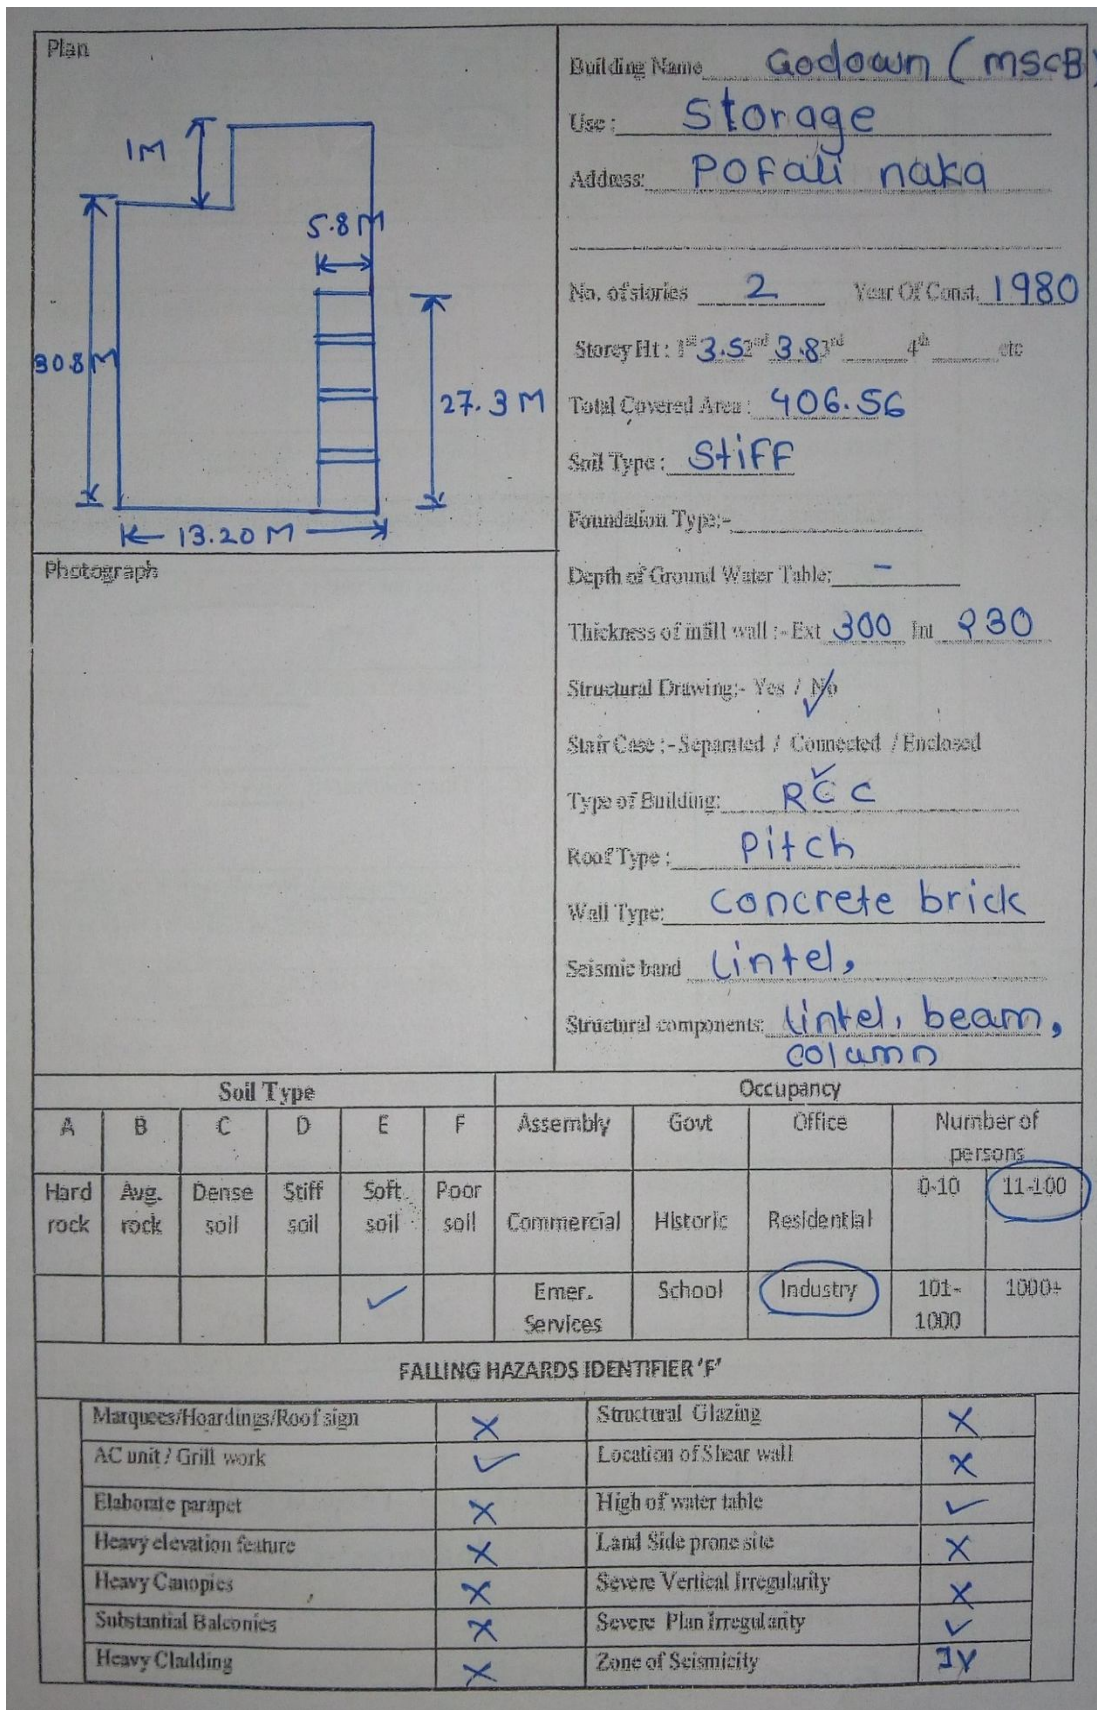 Plan
1M
5.8M
30.8M
27.3 M
13.20 M
Photograph
Building Name Godown (MSCB)
Use : Storage
Address: Pofali naka
No. of stories 2 Year Of Const. 1980
Storey Ht : 1st 3.5 2nd 3.8 3rd 4th etc
Total Covered Area : 406.56
Soil Type : Stiff
Foundation Type:-
Depth of Ground Water Table: -
Thickness of infill wall :- Ext 300 Int 230
Structural Drawing:- Yes / No
Stair Case :- Separated / Connected / Enclosed
Type of Building: RCC
Roof Type : Pitch
Wall Type: Concrete brick
Seismic band Lintel,
Structural components: Lintel, beam,
column
Soil Type Occupancy
A B C D E F Assembly Govt Office Number of
persons
Hard Avg. Dense Stiff Soft Poor 0-10 11-100
rock rock soil soil soil soil Commercial Historic Residential
Emer. School Industry 101- 1000+
Services 1000
FALLING HAZARDS IDENTIFIER 'F'
Marquees/Hoardings/Roof sign X Structural Glazing X
AC unit / Grill work ✓ Location of Shear wall X
Elaborate parapet X High of water table ✓
Heavy elevation feature X Land Side prone site X
Heavy Canopies X Severe Vertical Irregularity X
Substantial Balconies X Severe Plan Irregularity ✓
Heavy Cladding X Zone of Seismicity IV